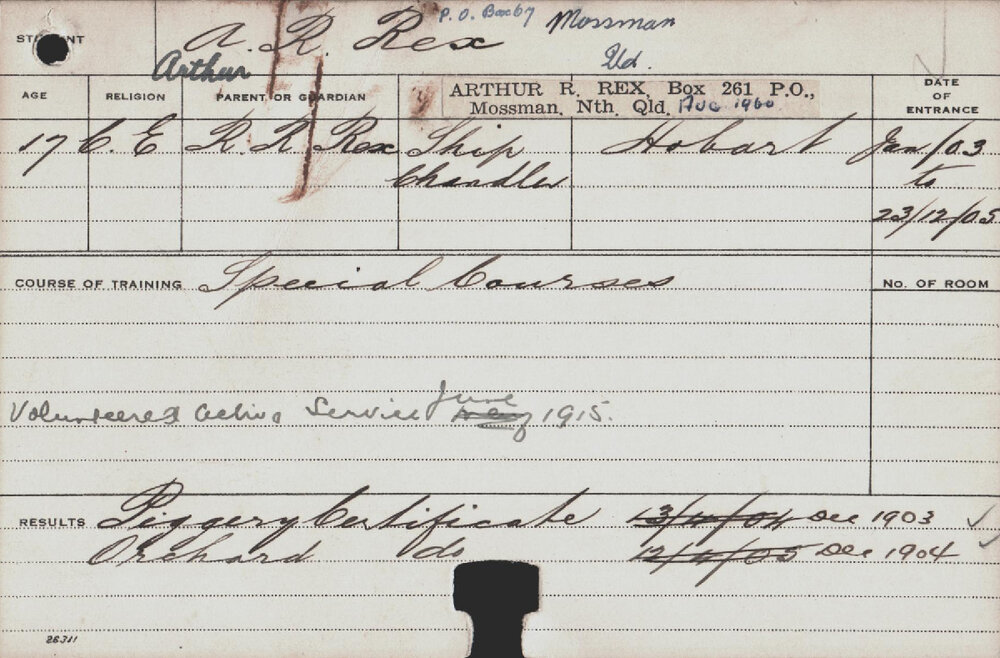 STUDENT A. R. Rex P. O. Box 67 Mossman
Arthur Qld.
AGE RELIGION PARENT OR GUARDIAN ARTHUR R. REX, Box 261 P.O., DATE OF ENTRANCE
Mossman, Nth. Qld. Aug 1960
17 C. E R. R Rex Ship Hobart Jan/03
Chandler to
23/12/05
COURSE OF TRAINING Special Courses No. OF ROOM
Volunteered active Service June 1915.
RESULTS Piggery Certificate 13/4/04 Dec 1903
Orchard do 12/4/05 Dec 1904
26311